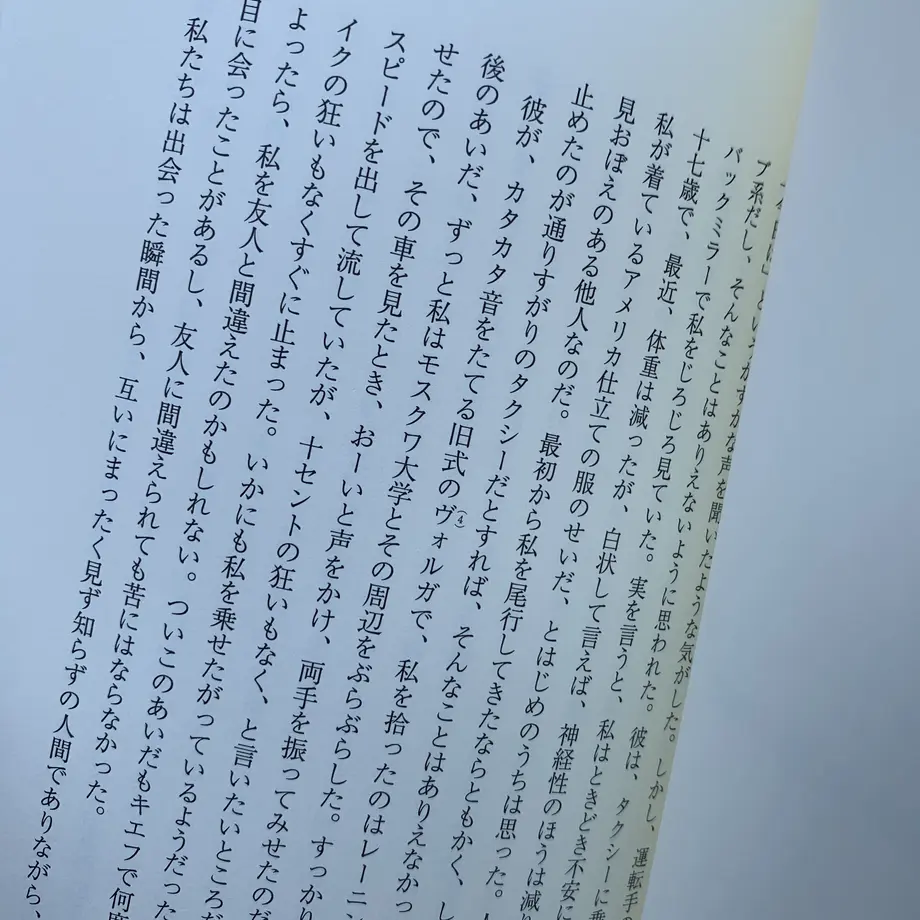 というかすかな声を聞いたような気がした。しかし、運転手の
プ系だし、そんなことはありえないように思われた。彼は、タクシーに乗
バックミラーで私をじろじろ見ていた。実を言うと、私はときどき不安に
十七歳で、最近、体重は減ったが、白状して言えば、神経性のほうは減り
私が着ているアメリカ仕立ての服のせいだ、とはじめのうちは思った。
見おぼえのある他人なのだ。最初から私を尾行してきたならともかく、し
止めたのが通りすがりのタクシーだとすれば、そんなことはありえなかっ
彼が、カタカタ音をたてる旧式のヴォルガで、私を拾ったのはレーニン
(4)
後のあいだ、ずっと私はモスクワ大学とその周辺をぶらぶらした。すっかり
せたので、その車を見たとき、おーいと声をかけ、両手を振ってみせたのだ
スピードを出して流していたが、十セントの狂いもなく、と言いたいところだ
イクの狂いもなくすぐに止まった。いかにも私を乗せたがっているようだった
よったら、私を友人と間違えたのかもしれない。ついこのあいだもキエフで何度
目に会ったことがあるし、友人に間違えられても苦にはならなかった。
私たちは出会った瞬間から、互いにまったく見ず知らずの人間でありながら、